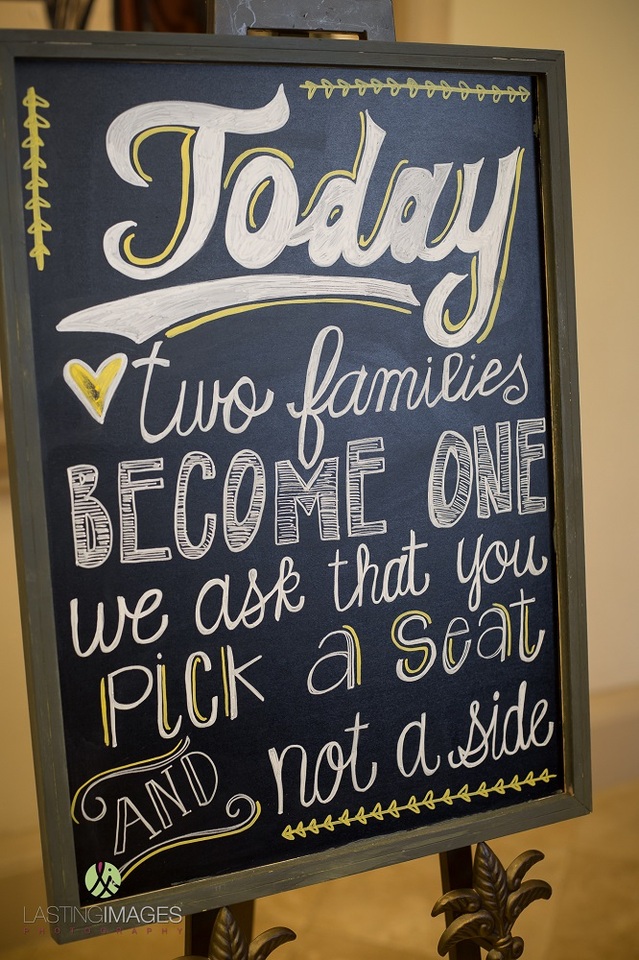 Today
two families
BECOME ONE
we ask that you
PiCK a Seat
AND not a side
LASTINGIMAGES
PHOTOGRAPHY